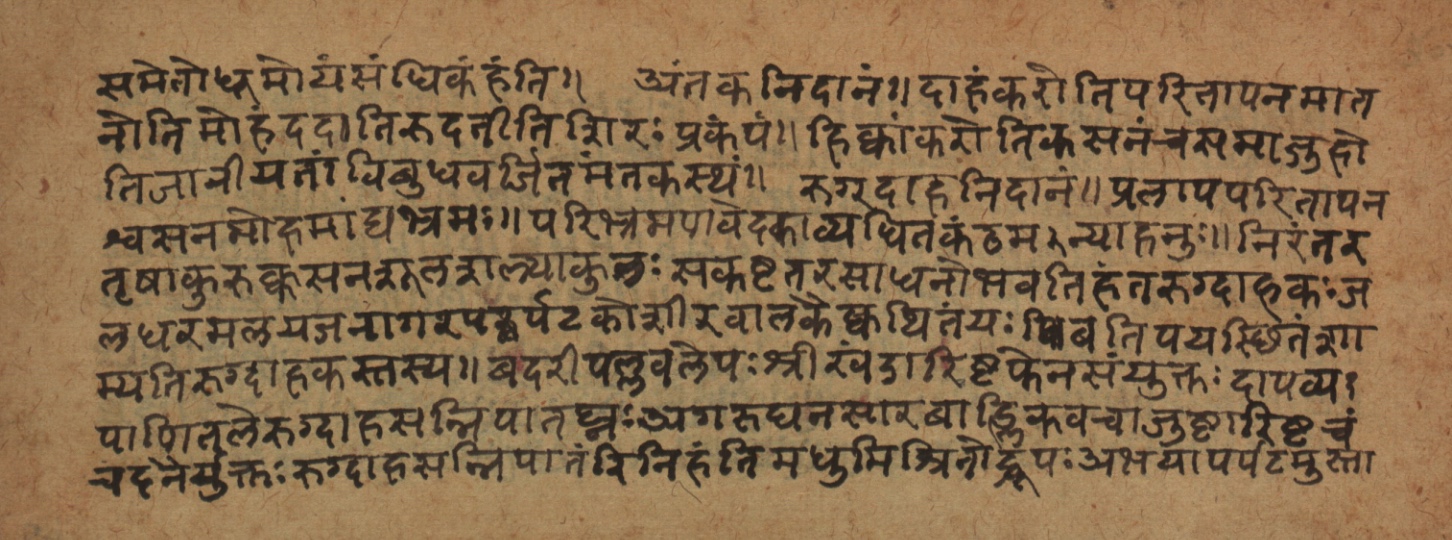 समेतो धूमोयं संधिकं हंति॥ अंतकनिदानं॥ दाहंकरोतिपरितापनमात
नोतिमोहंददातिरुदतीतिशिरः प्रकंपं॥ हिक्कांकरोतिकसनंचसमाजुहो
तिजानीयतांविबुधवर्जितमंतकस्थं॥ रुग्दाहनिदानं॥ प्रलापपरितापन
श्वसनमोहमांद्यभ्रमः॥ परिभ्रमणवेदकाव्यथितकंठमन्याहनुः॥ निरंतर
तृषाकुरुक्कसनशूलशल्याकुलः सकष्टतरसाधनोभवतिहंतरुग्दाहकः ज
लधरमलयजनागरपर्पटकोशीरवालकैक्कथितंयः पिबतिपयस्छितंशा
म्यतिरुग्दाहकस्तस्य॥ बदरीपल्लवलेपः श्रीखंडारिष्टफेनसंयुक्तः दापव्यः
पाणितलेरुग्दाहसन्निपातघ्नः अगरूघनसारबाह्लिकवचाजुष्टारिष्टचं
चदनैर्युक्तः रुग्दाहसन्निपातंविनिहंतिमधुमिश्रितोद्धूपः अभयापर्पटमुस्ता